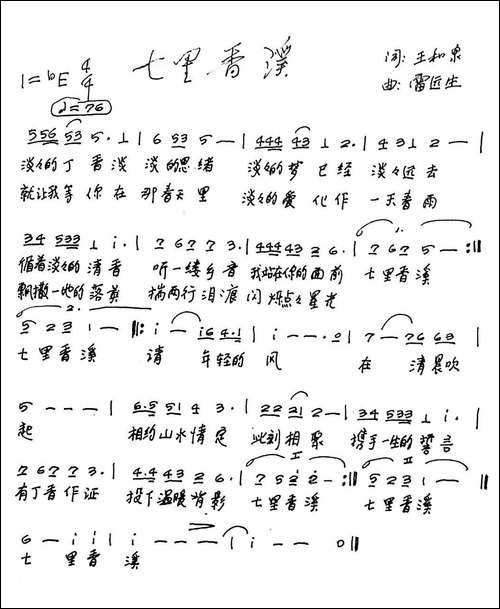 七里香溪
1=♭E 4/4
词: 王和泉
曲: 雷远生
♩=76
5 5 6 5 3 5 · 1 | 6 5 3 5 — | 4 4 4 4 3 1 2 · | 4 3 1 2 — |
淡々的丁香淡 淡的思绪 淡々的梦 已经 淡々远去
就让我等 你在 那春天里 淡々的爱 化作 一天春雨
3 4 5 3 3 1 i · | 7 6 7 7 3 · | 4 4 4 4 3 2 6 · | 7 6 7 5 — :||
循着淡々的清香 听一缕乡音 我站在你的面前 七里香溪
飘撒一地的落英 揣两行泪滴 闪烁点々星光
5 2 3 1 — ||: i — i 6 4 · 1 | i — — · 0 | 7 — 7 6 6 3 |
七里香溪 请 年轻的 风 在 清晨吹
5 — — — | 6 · 5 5 1 4 3 · | 2 2 3 1 2 — | 3 4 5 3 3 1 i · |
起 相约山水情定 此刻相聚 携手一生的誓言
7 6 7 7 3 · | 4 · 4 4 3 2 6 · | 7 5 2 2 — :|| 5 2 3 1 — |
有丁香作证 投下温暖背影 七里香溪 七里香溪
6 — i i | i — — — | i — — 0 ||
七 里香 溪